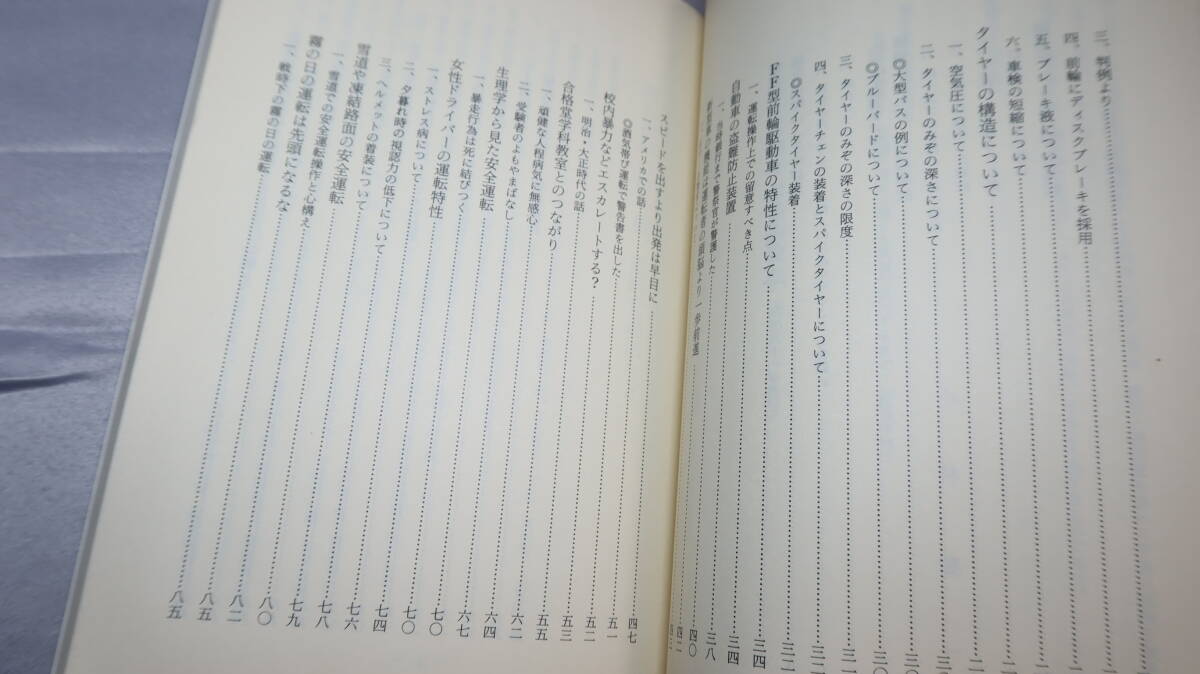 三、判例より
四、前輪にディスクブレーキを採用
五、ブレーキ液について
六、車検の短縮について
タイヤーの構造について
一、空気圧について
二、タイヤーのみぞの深さについて
◎大型バスの例について 三〇
◎ブルーバードについて 三〇
三、タイヤーのみぞの深さの限度
四、タイヤーチェンの装着とスパイクタイヤーについて
◎スパイクタイヤー装着
FF型前輪駆動車の特性について 三四
一、運転操作上での留意すべき点 三四
自動車の盗難防止装置 三八
一、当時銀行まで警察官が警護した 四〇
運転者の頭脳より一歩前進 四二
スピードを出すより出発は早目に 四七
一、アメリカでの話 五一
◎酒気帯び運転で警告書を出した 五二
校内暴力などエスカレートする? 五三
一、明治・大正時代の話 五五
合格堂学科教室とのつながり 六二
一、頑健な人程病気に無感心 六四
二、受験者のよもやまばなし 六七
生理学から見た安全運転 七〇
一、暴走行為は死に結びつく 七〇
女性ドライバーの運転特性 七四
一、ストレス病について 七六
二、夕暮れ時の視認力の低下について 七八
三、ヘルメットの着装について 七九
雪道や凍結路面の安全運転 八〇
一、雪道での安全運転操作と心構え 八二
霧の日の運転は先頭になるな 八五
一、戦時下の霧の日の運転 八五